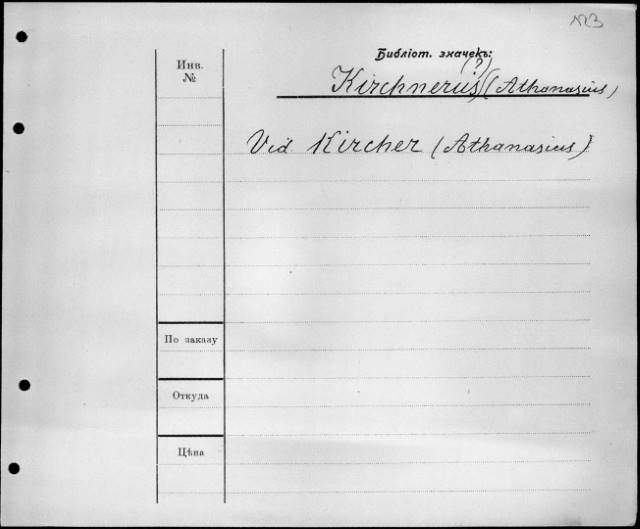 Инв.
№
Библіот. значекъ:
(?)
Kirchnerius (Athanasius)
Vid Kircher (Athanasius)
По заказу
Откуда
Цѣна